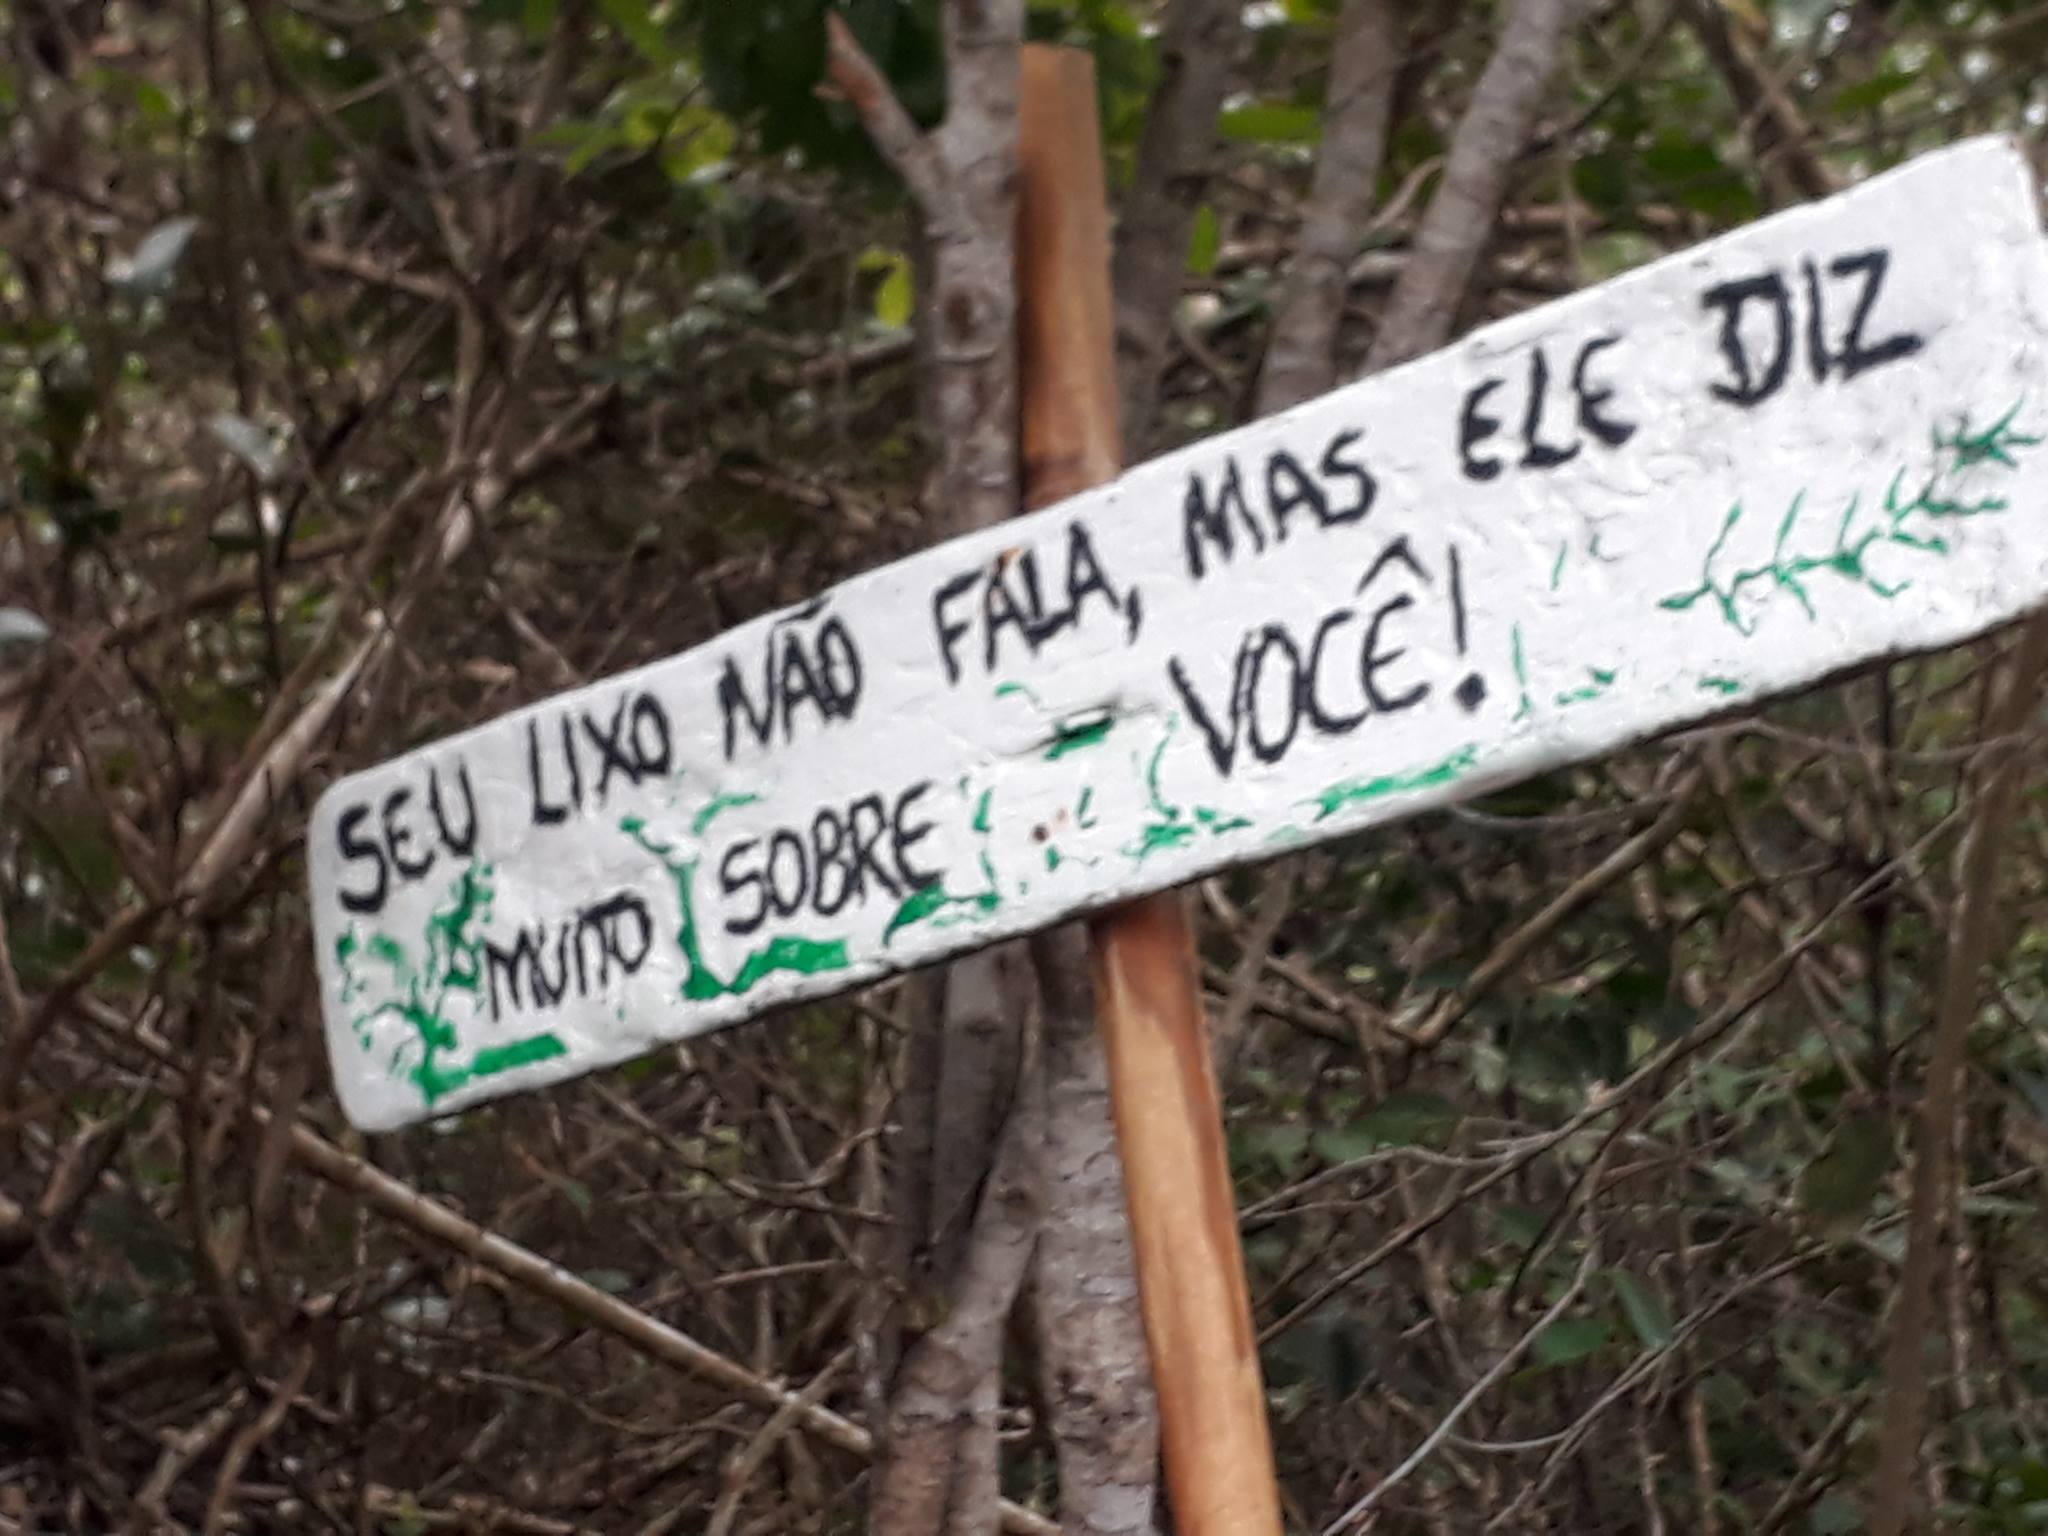 SEU LIXO NÃO FALA, MAS ELE DIZ
MUITO SOBRE VOCÊ!